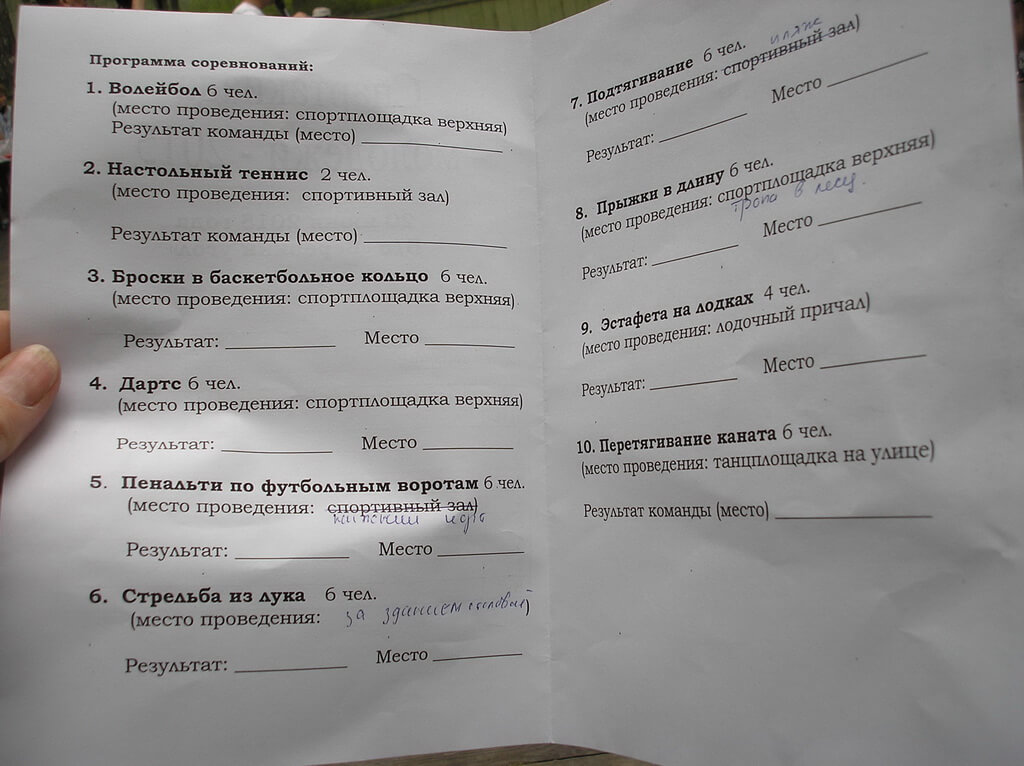 Программа соревнований:
1. Волейбол 6 чел.
(место проведения: спортплощадка верхняя)
Результат команды (место) ____________
2. Настольный теннис 2 чел.
(место проведения: спортивный зал)
Результат команды (место) ____________
3. Броски в баскетбольное кольцо 6 чел.
(место проведения: спортплощадка верхняя)
Результат: __________ Место ________
4. Дартс 6 чел.
(место проведения: спортплощадка верхняя)
Результат: __________ Место ________
5. Пенальти по футбольным воротам 6 чел.
(место проведения: спортивный зал)
Результат: __________ Место ________
6. Стрельба из лука 6 чел.
(место проведения: за зданием столовой)
Результат: __________ Место ________
7. Подтягивание 6 чел.
пляж
(место проведения: спортивный зал)
Результат: ________ Место ________
8. Прыжки в длину 6 чел.
(место проведения: спортплощадка верхняя)
тропа в лесу.
Результат: ________ Место ________
9. Эстафета на лодках 4 чел.
(место проведения: лодочный причал)
Результат: ________ Место ________
10. Перетягивание каната 6 чел.
(место проведения: танцплощадка на улице)
Результат команды (место) ____________